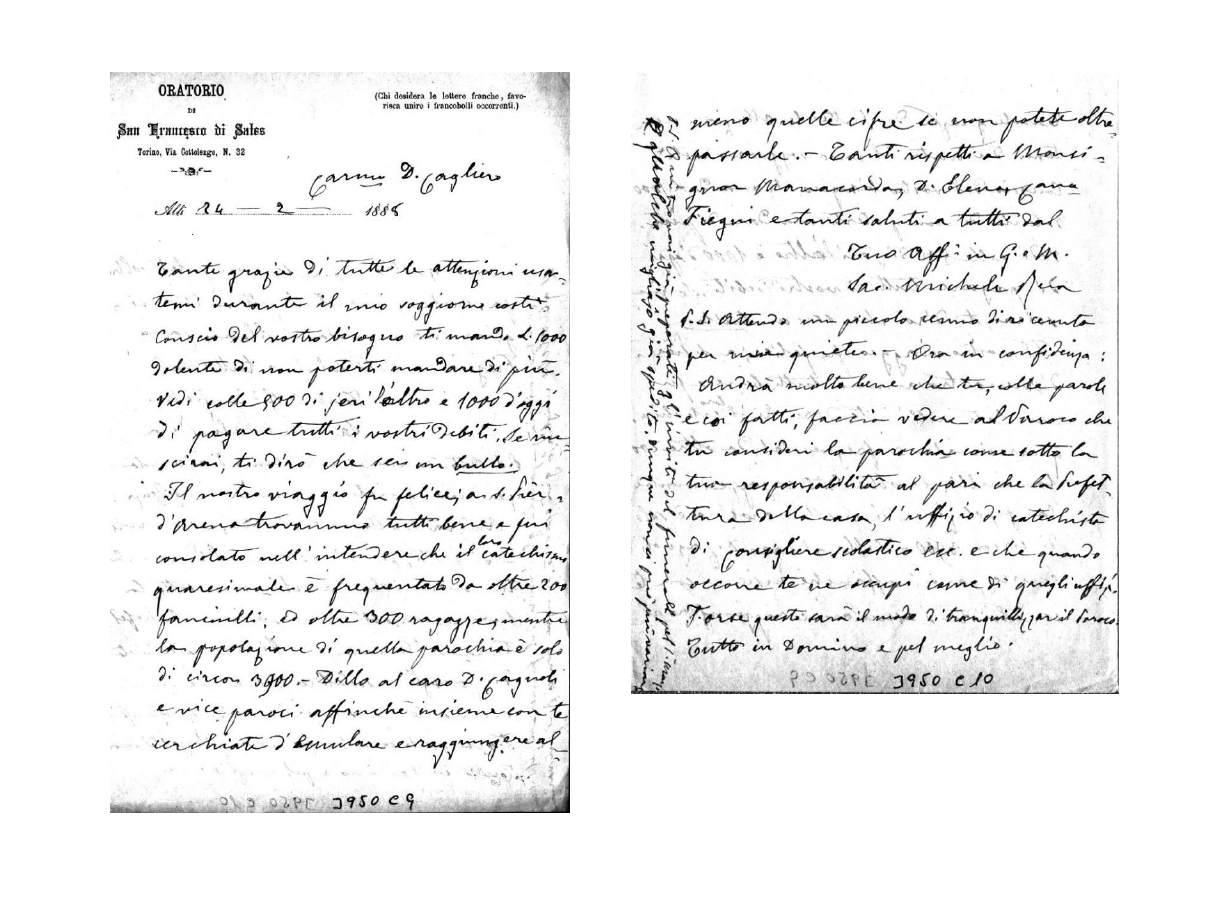 ORATORIO
DI
San Francesco di Sales
Torino, Via Cottolengo, N. 32
(Chi desidera le lettere franche, favo-
risca unire i francobolli occorrenti.)
Carmo D. Cagliero
Alli 24 - 2 - 1888
Tante grazie di tutte le attenzioni usa-
temi durante il mio soggiorno costì.
Conscio del vostro bisogno ti mando L. 1000
dolente di non poterti mandare di più.
Vedi colle 500 di jeri l'altro e 1000 d'oggi
di pagare tutti i vostri debiti. Se riu-
scirai, ti dirò che sei un bullo.
Il nostro viaggio fu felice; a S. Pier-
d'Arena trovammo tutti bene e fui
consolato nell'intendere che il loro catechismo
quaresimale è frequentato da oltre 200
fanciulli, ed oltre 300 ragazze, mentre
la popolazione di quella parochia è solo
di circa 3900. - Dillo al caro D. Cagnoli
e vice paroci affinchè insieme con te
cerchiate d'emulare e raggiungere al-
J950 C 9
meno quelle cifre se non potete oltre-
passarle. - Tanti rispetti a Monsi-
gnor Manacorda, D. Elena,
Fiegni e tanti saluti a tutti dal
Tuo Aff. in G. e M.
Sac. Michele Rua
P.S. Attendo un piccolo cenno di ricevuta
per mia quiete. - Ora in confidenza:
Andrà molto bene che tu, colle parole
e coi fatti, faccia vedere al Paroco che
tu consideri la parochia come sotto la
tua responsabilità al pari che la Prefet-
tura della casa, l'uffizio di catechista
di Consigliere scolastico ecc. e che quando
occorre te ne occupi come di quegli uffizi.
Forse questo sarà il modo di tranquillizzar il Paroco.
Tutto in Domino e pel meglio.
preparati gl'inviti del funerale pel
qualche migliaio già spedito, dunque non si può
J950 C 10